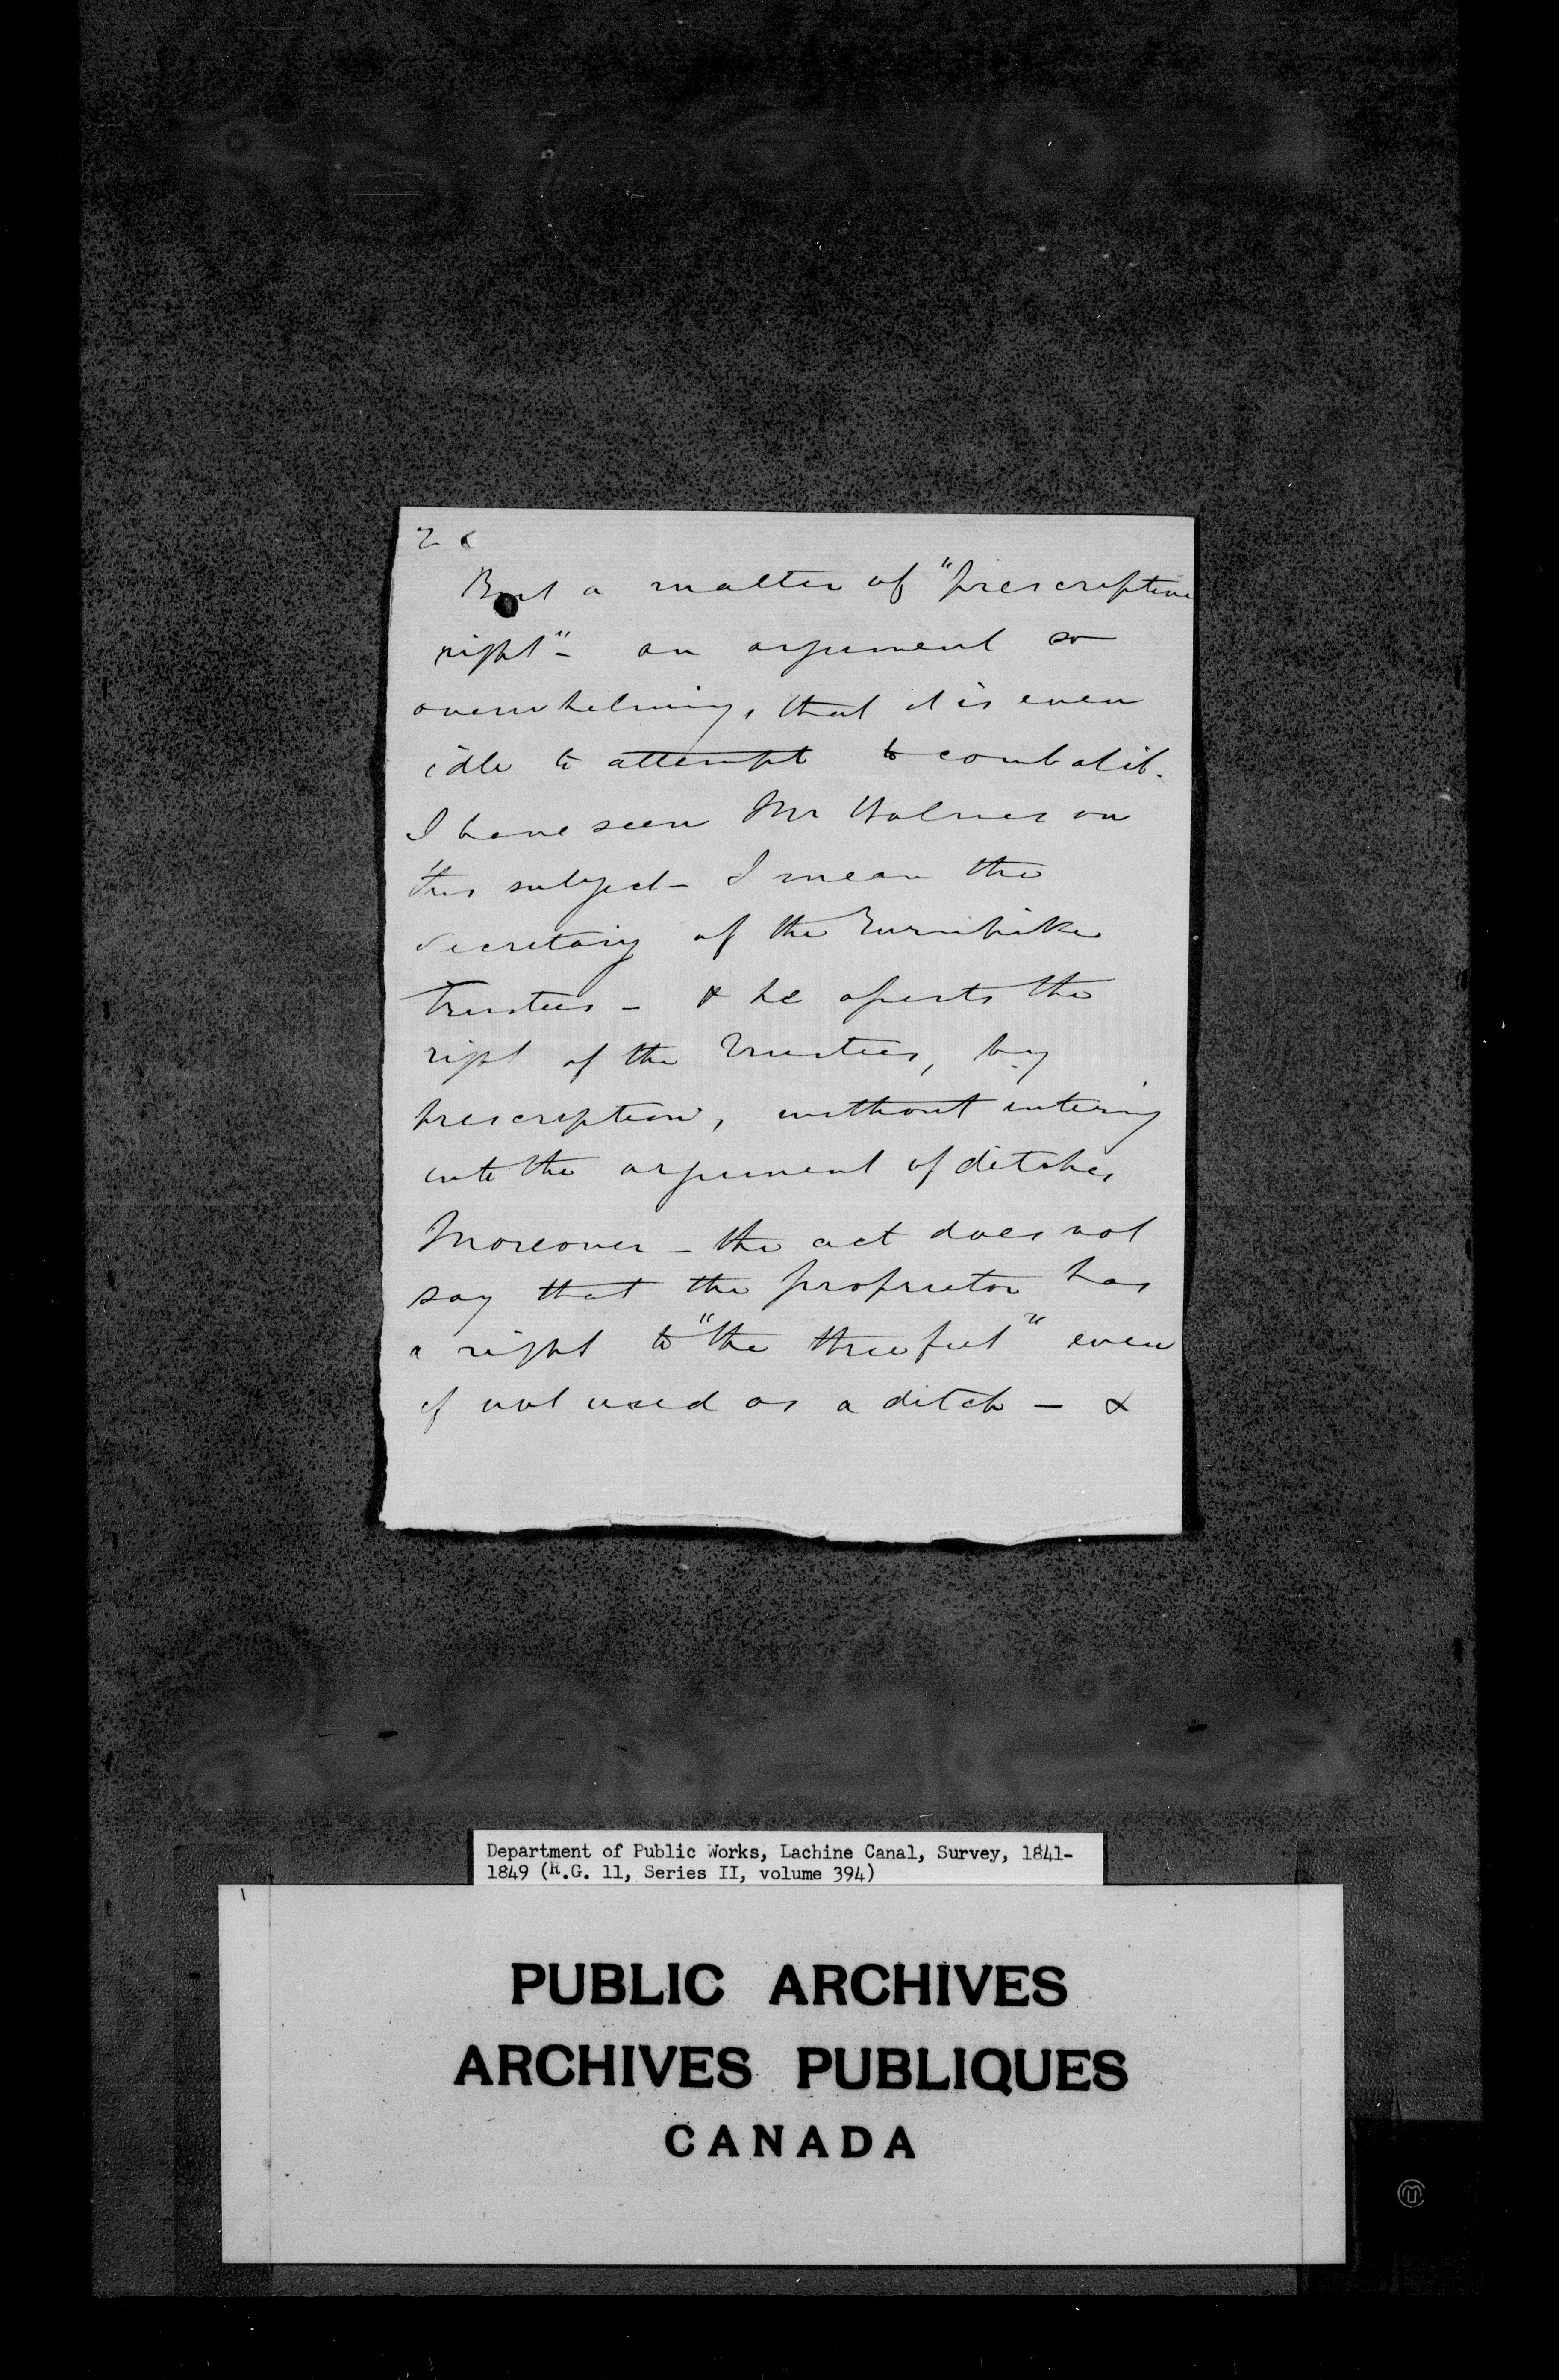 2
But a matter of "prescriptive
right" - an argument so
overwhelming, that it is even
idle to attempt to combat it.
I have seen Mr Holmes on
this subject - I mean the
Secretary of the Turnpike
Trustees - & he asserts the
right of the Trustees, by
prescription, without entering
into the argument of ditches
Moreover - the act does not
say that the proprietor has
a right to "the three feet" even
if not used as a ditch - &
Department of Public Works, Lachine Canal, Survey, 1841-
1849 (R.G. 11, Series II, volume 394)
PUBLIC ARCHIVES
ARCHIVES PUBLIQUES
CANADA